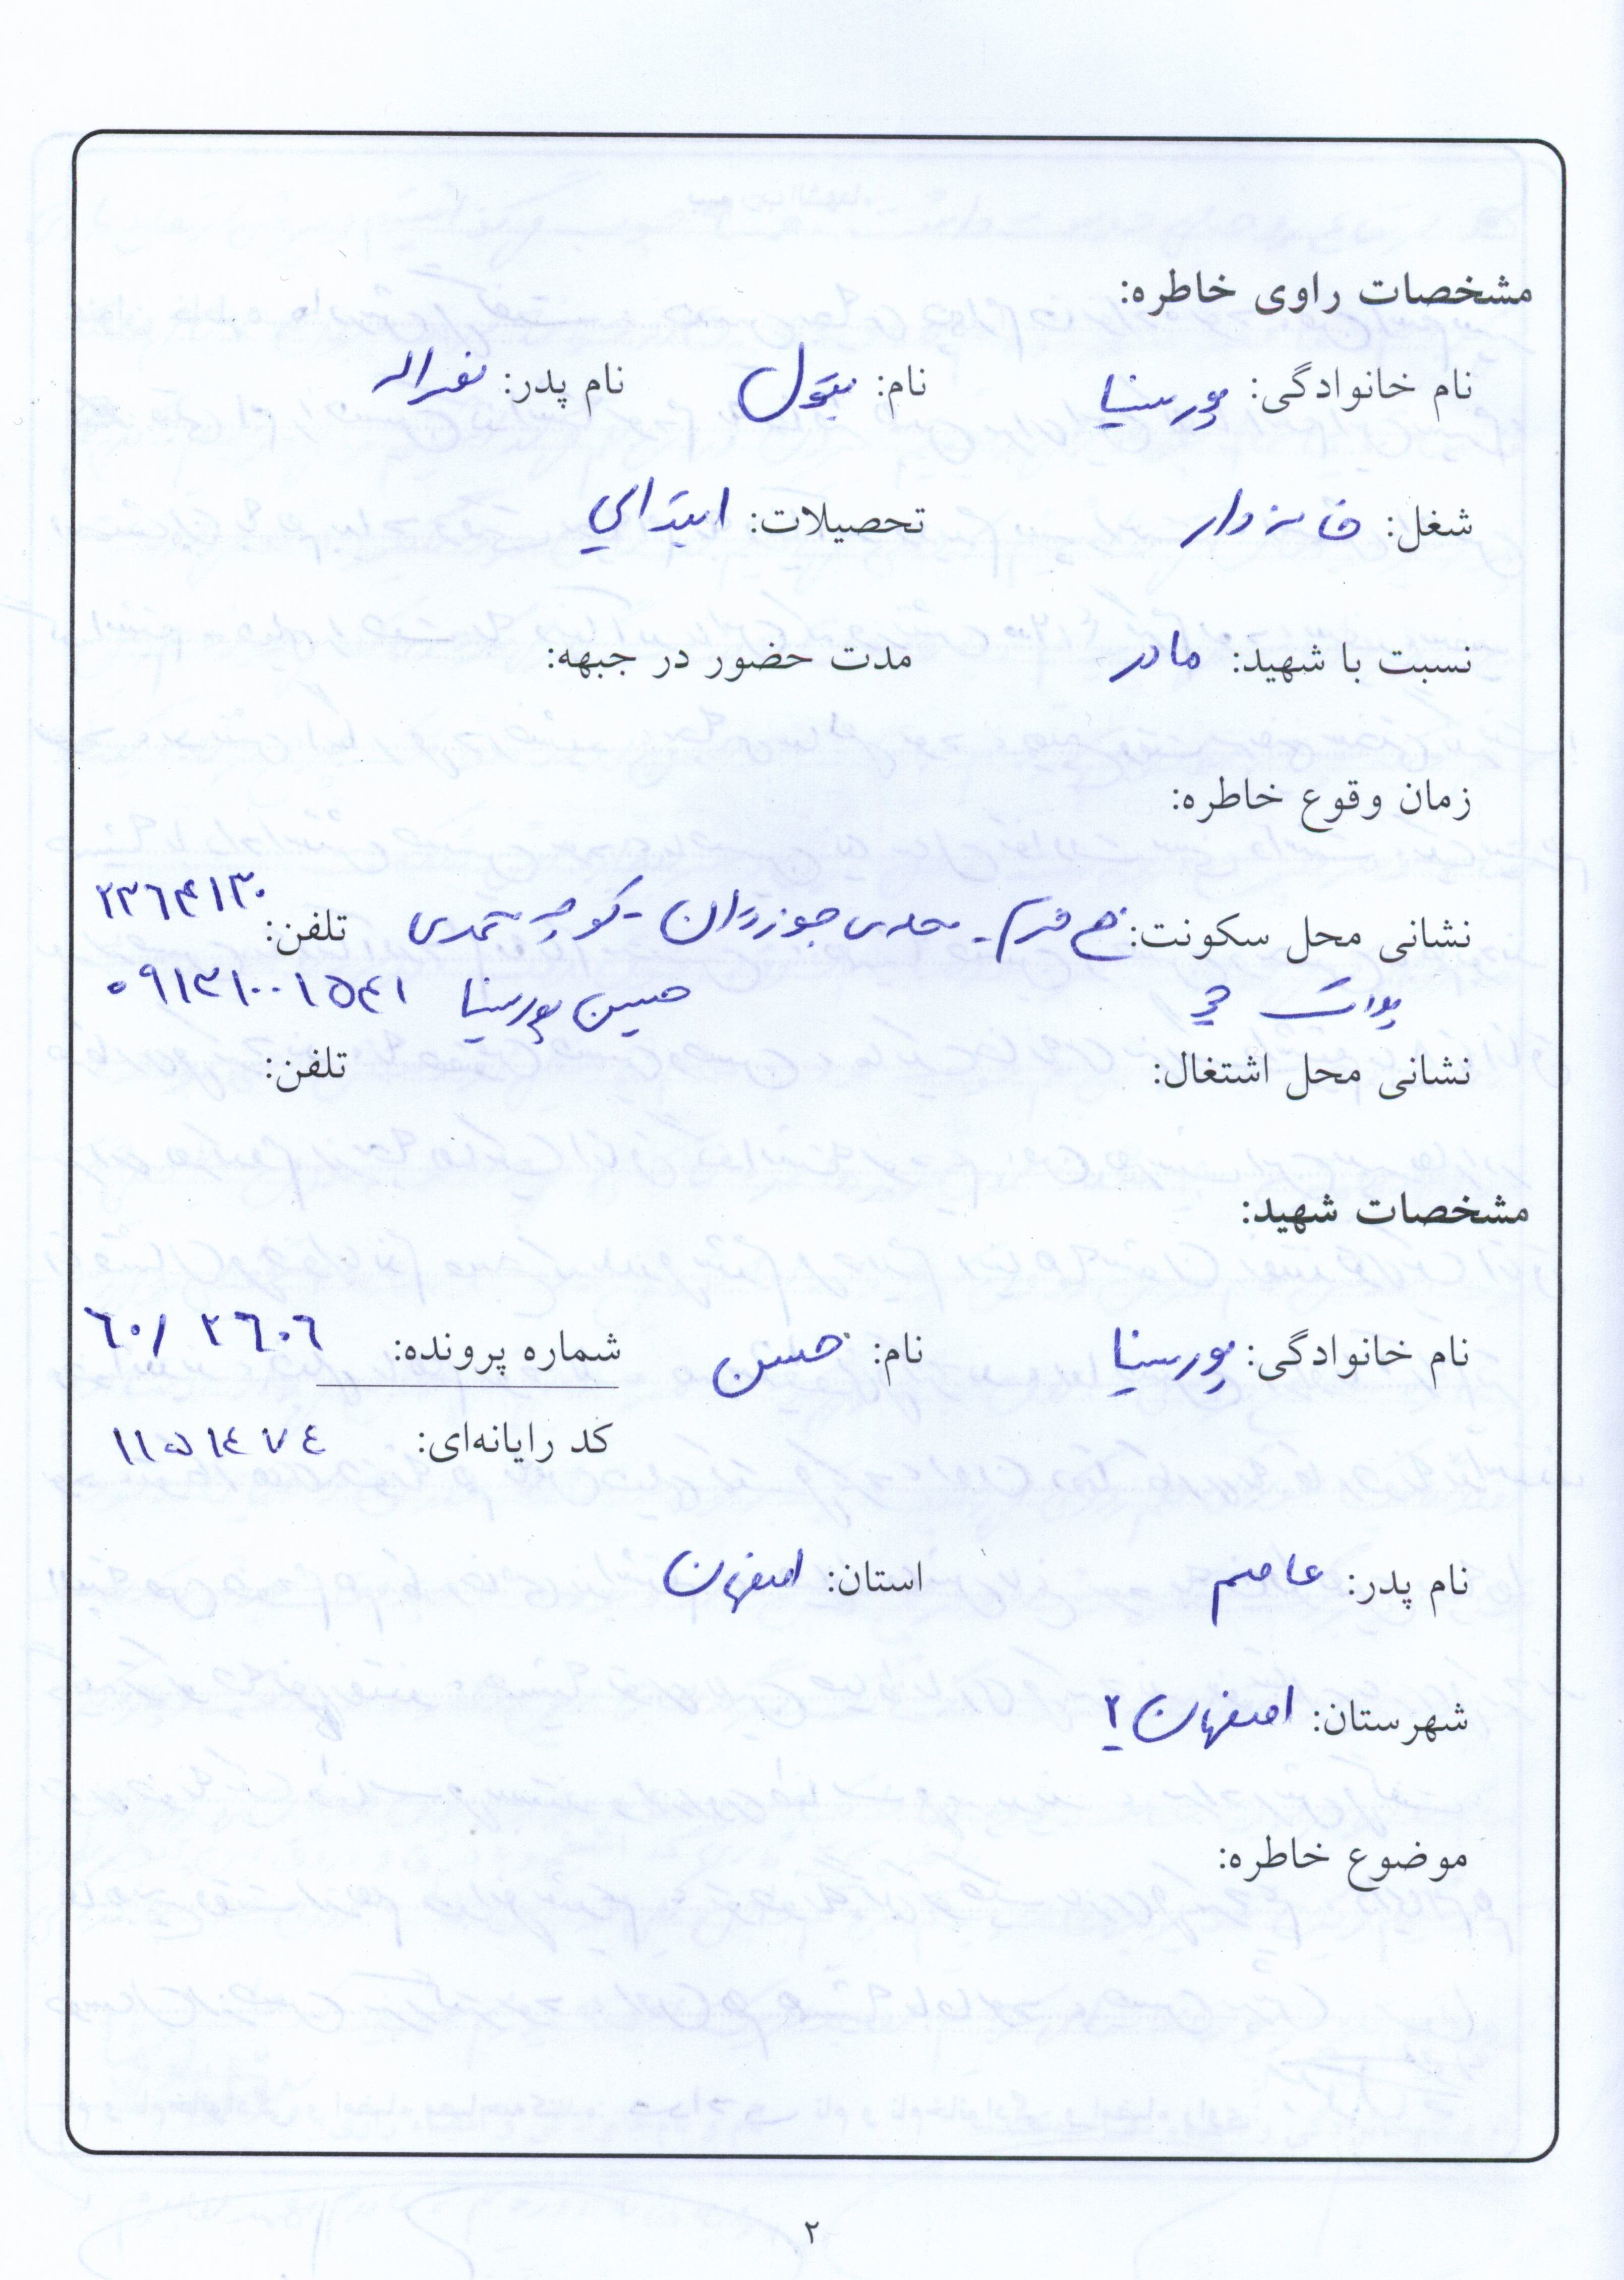 مشخصات راوی خاطره:
نام خانوادگی: پورسینا نام: بتول نام پدر: نصراله
شغل: خانه دار تحصیلات: ابتدایی
نسبت با شهید: مادر مدت حضور در جبهه:
زمان وقوع خاطره:
نشانی محل سکونت: خ خرم - محله جوزدان - کوچه تلفن: ۲۳۶۴۱۳۰
پلاک حسین پورسینا ۰۹۱۳۱۰۰۱۵۴۱
نشانی محل اشتغال: تلفن:
مشخصات شهید:
نام خانوادگی: پورسینا نام: حسن شماره پرونده: ۶۰/۲۶۰۶
کد رایانه‌ای: ۱۱۵۱۴۷۴
نام پدر: عاصم استان: اصفهان
شهرستان: اصفهان ۲
موضوع خاطره:
۲